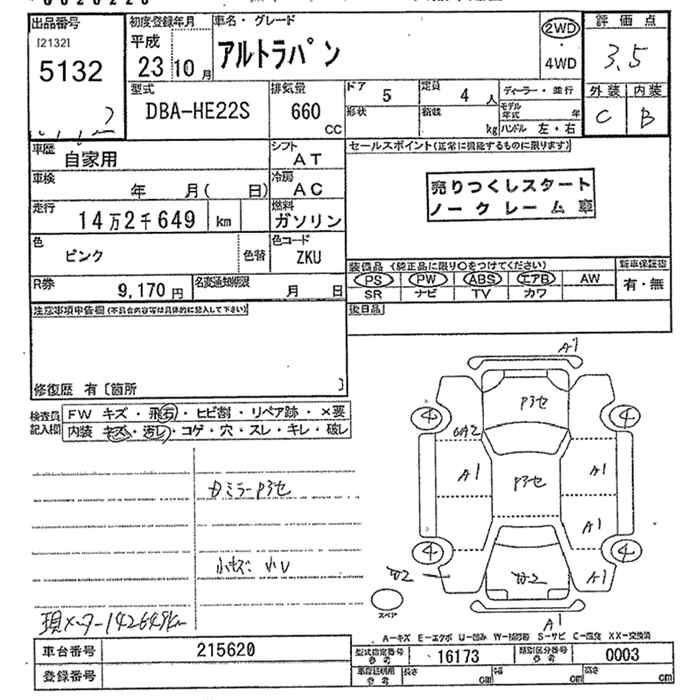 出品番号
[2132]
5132
初度登録年月
平成
23年10月
車名・グレード
アルトラパン
2WD
・
4WD
評価点
3.5
外装 内装
C B
型式
DBA-HE22S
排気量
660
CC
ドア
5
定員
4人
形状
積載
kg
ディーラー・並行
モデル年式 年
ハンドル 左・右
車歴
自家用
シフト
AT
車検
年 月( 日)
冷房
AC
走行
14万2千649 km
燃料
ガソリン
色
ピンク
色替
色コード
ZKU
R券
9,170円
名変通知期限
月 日
セールスポイント(正常に機能するものに限ります)
売りつくしスタート
ノークレーム車
装備品(純正品に限り○をつけてください)
PS PW ABS エアB AW
SR ナビ TV カワ
新車保証書
有・無
後日品
注意事項申告欄(不具合内容等は具体的に記入して下さい)
修復歴 有[箇所 ]
検査員記入欄
FW キズ・飛石・ヒビ割・リペア跡・×要
内装 キズ・汚レ・コゲ・穴・スレ・キレ・破レ
小キズ 小U
現メーター142649km
A1
4
4
A1
A1
A1
4
4
A1
A1
スペア
A-キズ E-エクボ U-凹み W-補修跡 S-サビ C-腐食 XX-交換済
車台番号
215620
登録番号
型式指定番号
参考
16173
類別区分番号
参考
0003
車庫証明用
参考
長さ cm
幅 cm
高さ cm